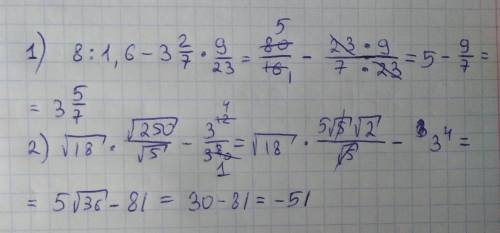 1) 8 : 1,6 − 3 2/7 · 9/23 = 80/16 5 1 − 23 · 9 / 7 · 23 = 5 − 9/7 =
= 3 5/7
2) √18 · √250/√5 − 3^12/3^8 4 1 = √18 · 5√5√2/√5 − 3^4 =
= 5√36 − 81 = 30 − 81 = −51